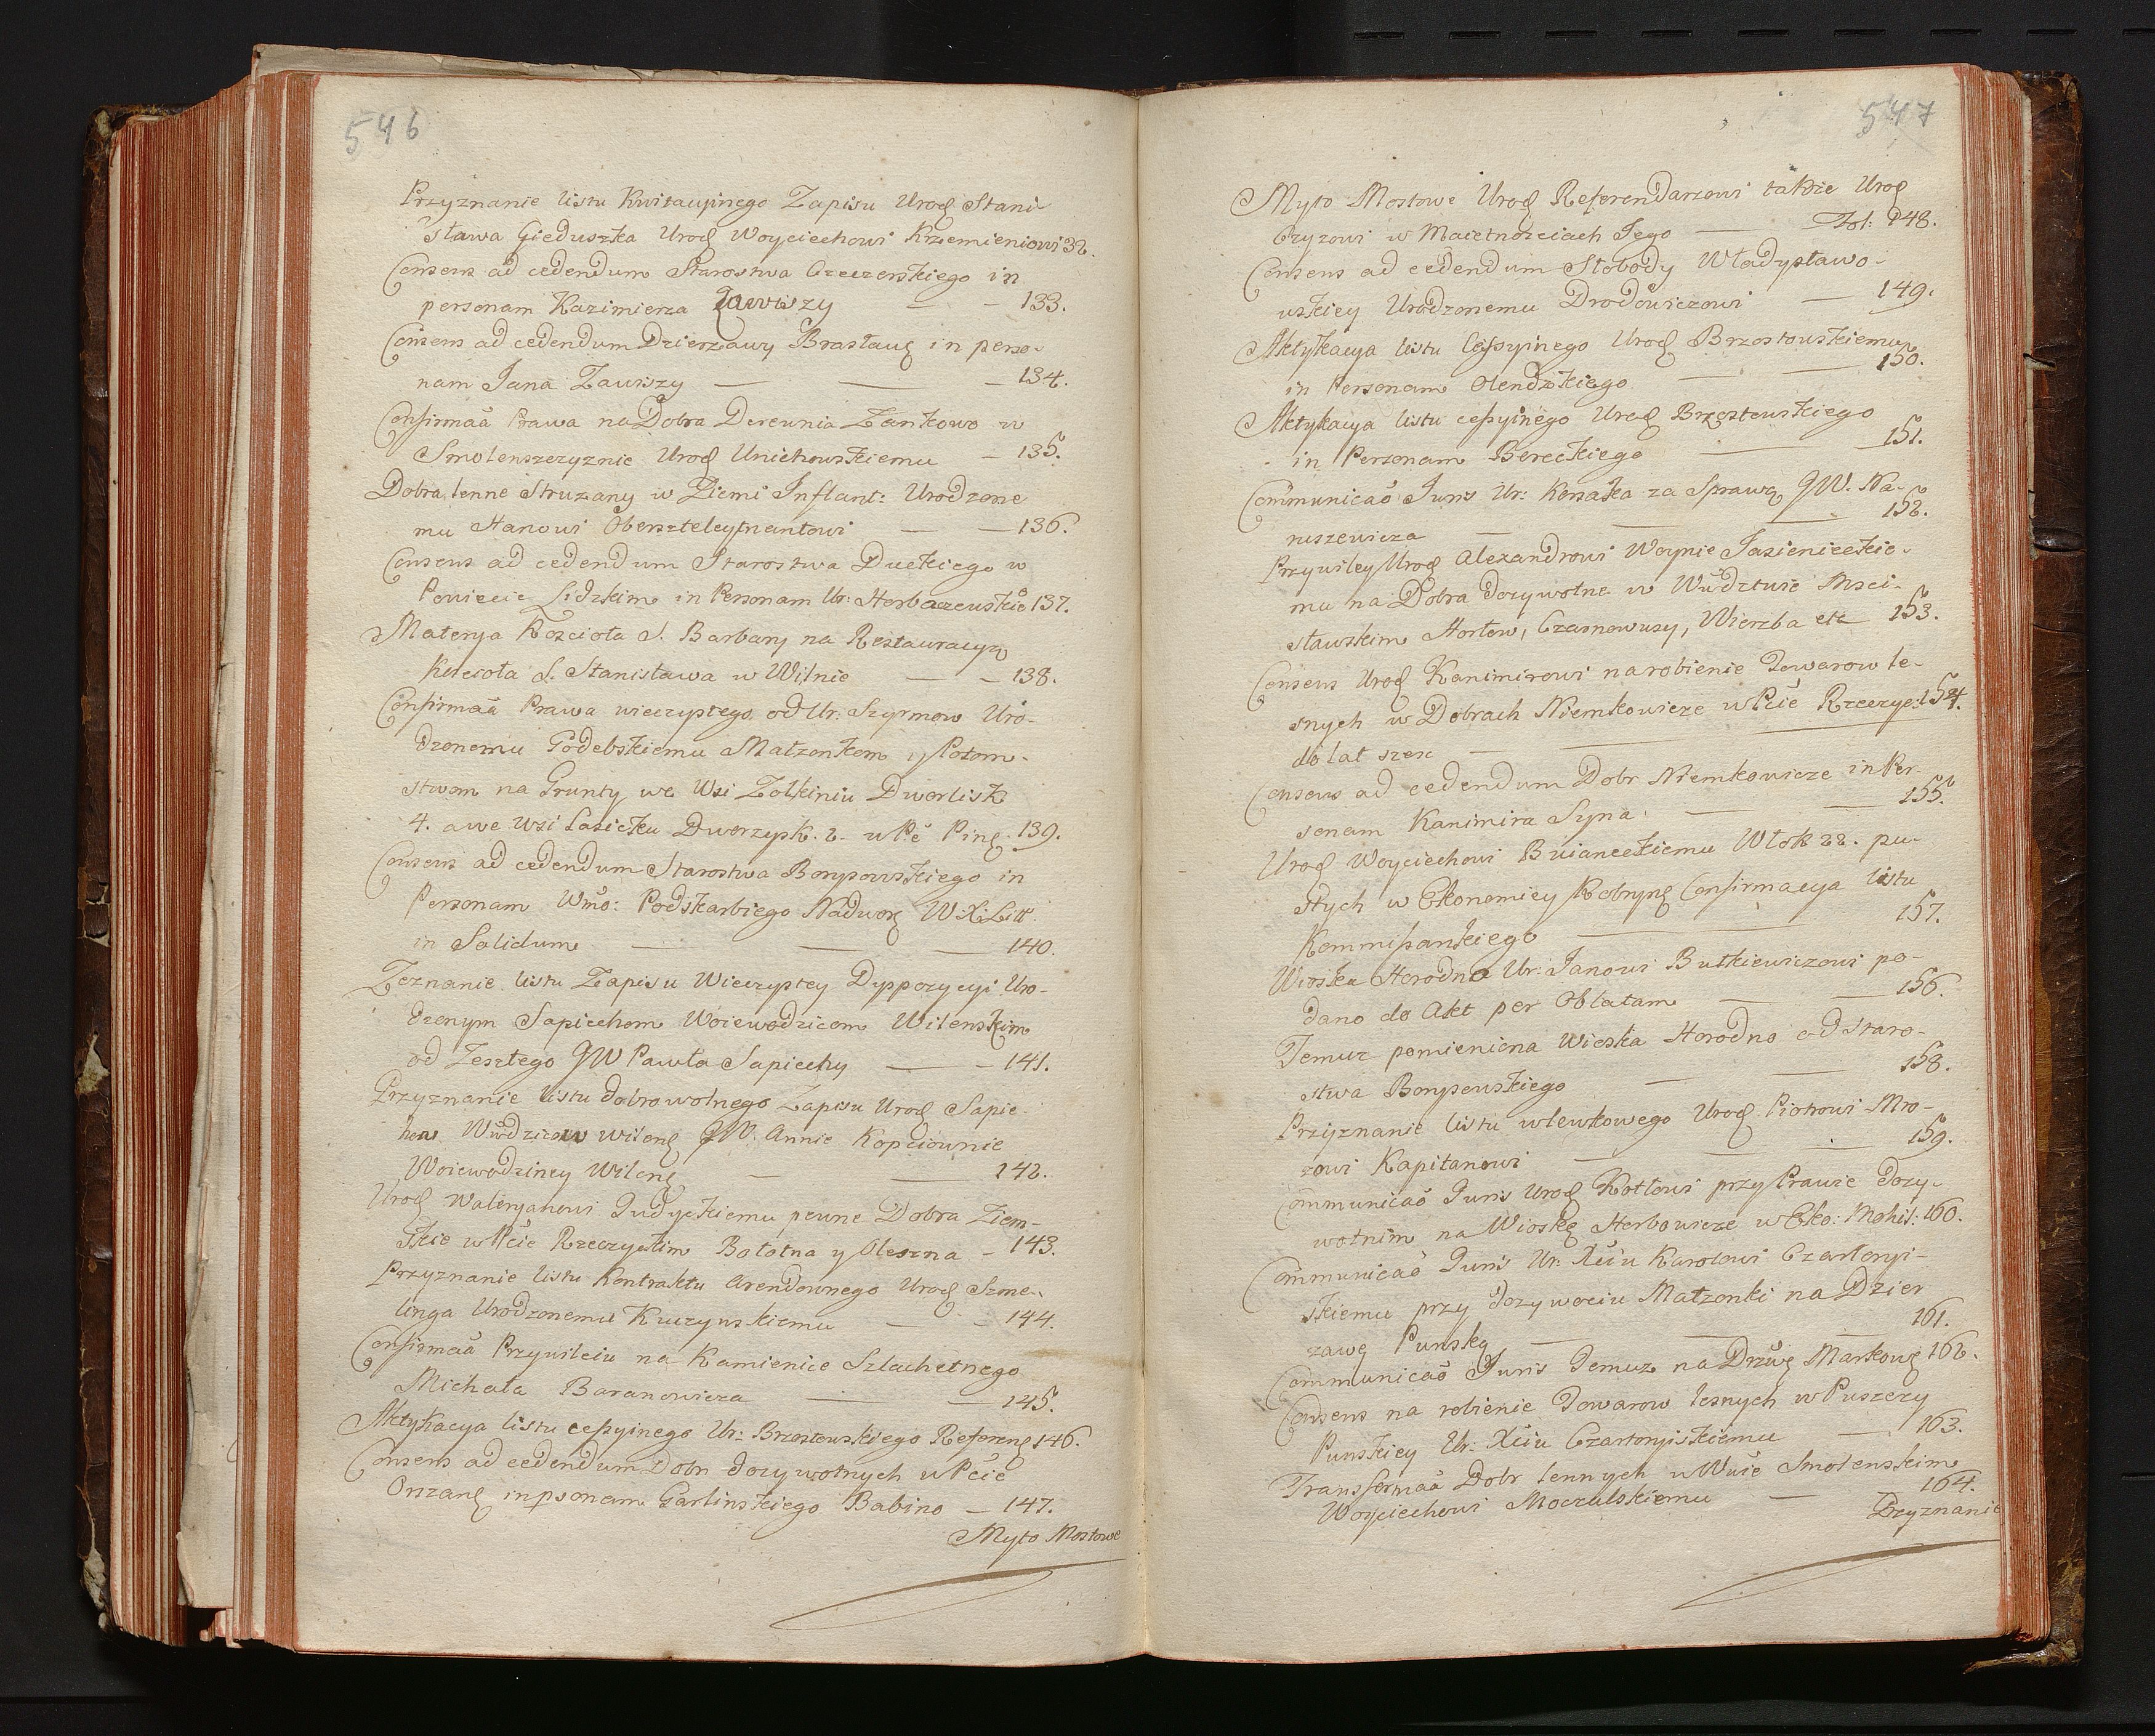 546
Przyznanie listu Kwitacyinego Zapisu Urod Stani
sława Gieduszka Urod Woyciechowi Krzemieniowi 32.
Consens ad cedendum Starostwa Czeczerskiego in
personam Kazimierza Zawiszy — 133.
Consens ad cedendum Dzierzawy Brasławs in perso-
nam Jana Zawiszy — — 134.
Confirmaã Prawa na Dobra Derewnia Zankowo w
Smolenszczyznie Urod Unichowskiemu — 135.
Dobra lenne Struzany w Ziemi Inflant: Urodzone
mu Hanowi Oberszteleytnantowi — 136.
Consens ad cedendum Starostwa Duckiego w
Powiecie Lidzkim in Personam Ur: Horbaczewskio 137.
Materya Kosciola S. Barbary na Restauracyą
Kosciola S. Stanisława w Wilnie — 138.
Confirmaã Prawa wieczystego od Ur: Szyrmow Uro-
dzonemu Godebskiemu Małzonkom y Potom-
stwom na Grunty we Wsi Zolkiniu Dworlisk
4. a we Wsi Lasicku Dworzysk. 2. w Pcě Pins. 139.
Consens ad cedendum Starostwa Borysowskiego in
Personam Wmo: Podskarbiego Nadwor W.X.Litt
in Solidum — — 140.
Zeznanie listu Zapisu Wieczystey Dyspozycyi Uro-
dzonym Sapiehom Woiewodzicom Wilenskim
od Zeszłego JW Pawła Sapiehy — 141.
Przyznanie listu dobrowolnego Zapisu Urod Sapie-
how Wwdzicow Wilens JW. Annie Kopciownie
Woiewodziney Wilens — — 142.
Urod Waleryanowi Judyckiemu pewne Dobra Ziem-
skie w Pcie Rzeczyckim Bołotna y Oleszna — 143.
Przyznanie listu Kontraktu Arendownego Urod Szme-
linga Urodzonemu Kuczynskiemu — 144.
Confirmaã Przywileiu na Kamienice Szlachetnego
Michała Baranowicza — 145.
Aktykacya listu cessyinego Ur: Brzostowskiego Referens 146.
Consens ad cedendum Dobr dozywotnych w Pcie
Orszans in psonam Garlinskiego Babino — 147.
Myto Mostowe
547
Myto Mostowe Urod Referendarzowi także Urod
Czyzowi w Maiętnosciach Jego — Fol: 148.
Consens ad cedendum Słobody Władysławo-
wskiey Urodzonemu Drodowiczowi — 149.
Aktykacya listu Cessyinego Urod Brzostowskiemu
in Personam Olendzkiego — — 150.
Aktykacya listu cessyinego Urod Brzostowskiego
in Personam Bereckiego — — 151.
Communicaõ Juris Ur: Korsaka za Sprawą JW. Na-
ruszewicza — — 152.
Przywiley Urod Alexandrowi Woynie Jasienieckie-
mu na Dobra dozywotne w Wwdztwie Msci-
sławskim Horłow, Czarnowusy, Wierzba etc 153.
Consens Urod Kanimirowi na robienie Towarow le-
snych w Dobrach Niemkowicze w Pcie Rzeczyc: 154.
do lat szesc —
Consens ad cedendum Dobr Niemkowicze in Per-
sonam Kanimira Syna — 155.
Urod Woyciechowi Buianeckiemu Włok 22. pu-
stych w Ekonomiey Kobryns Confirmacya listu
Kommissarskiego — 157.
Wioska Horodno Ur: Janowi Butkiewiczowi po-
dano do Akt per Oblatam — — 156.
Temuz pomieniona Wioska Horodno od Staro-
stwa Borysowskiego — — 158.
Przyznanie listu wlewkowego Urod Piotrowi Mro-
zowi Kapitanowi — — 159.
Communicaõ Juris Urod Kotłowi przy Prawie dozy-
wotnim na Wioskę Horbowicze w Eko: Mohil: 160.
Communicaõ Juris Ur: Xciu Karolowi Czartoryi-
skiemu przy dozywociu Małzonki na Dzier
zawę Punską — — 161.
Communicaõ Juris Temuz na Drzwę Markows 162.
Consens na robienie Towarow lesnych w Puszczy
Punskiey Ur: Xciu Czartoryiskiemu — 163.
Transformaã Dobr lennych w Wwie Smolenskim
Woyciechowi Moczulskiemu — 164.
Przyznanie